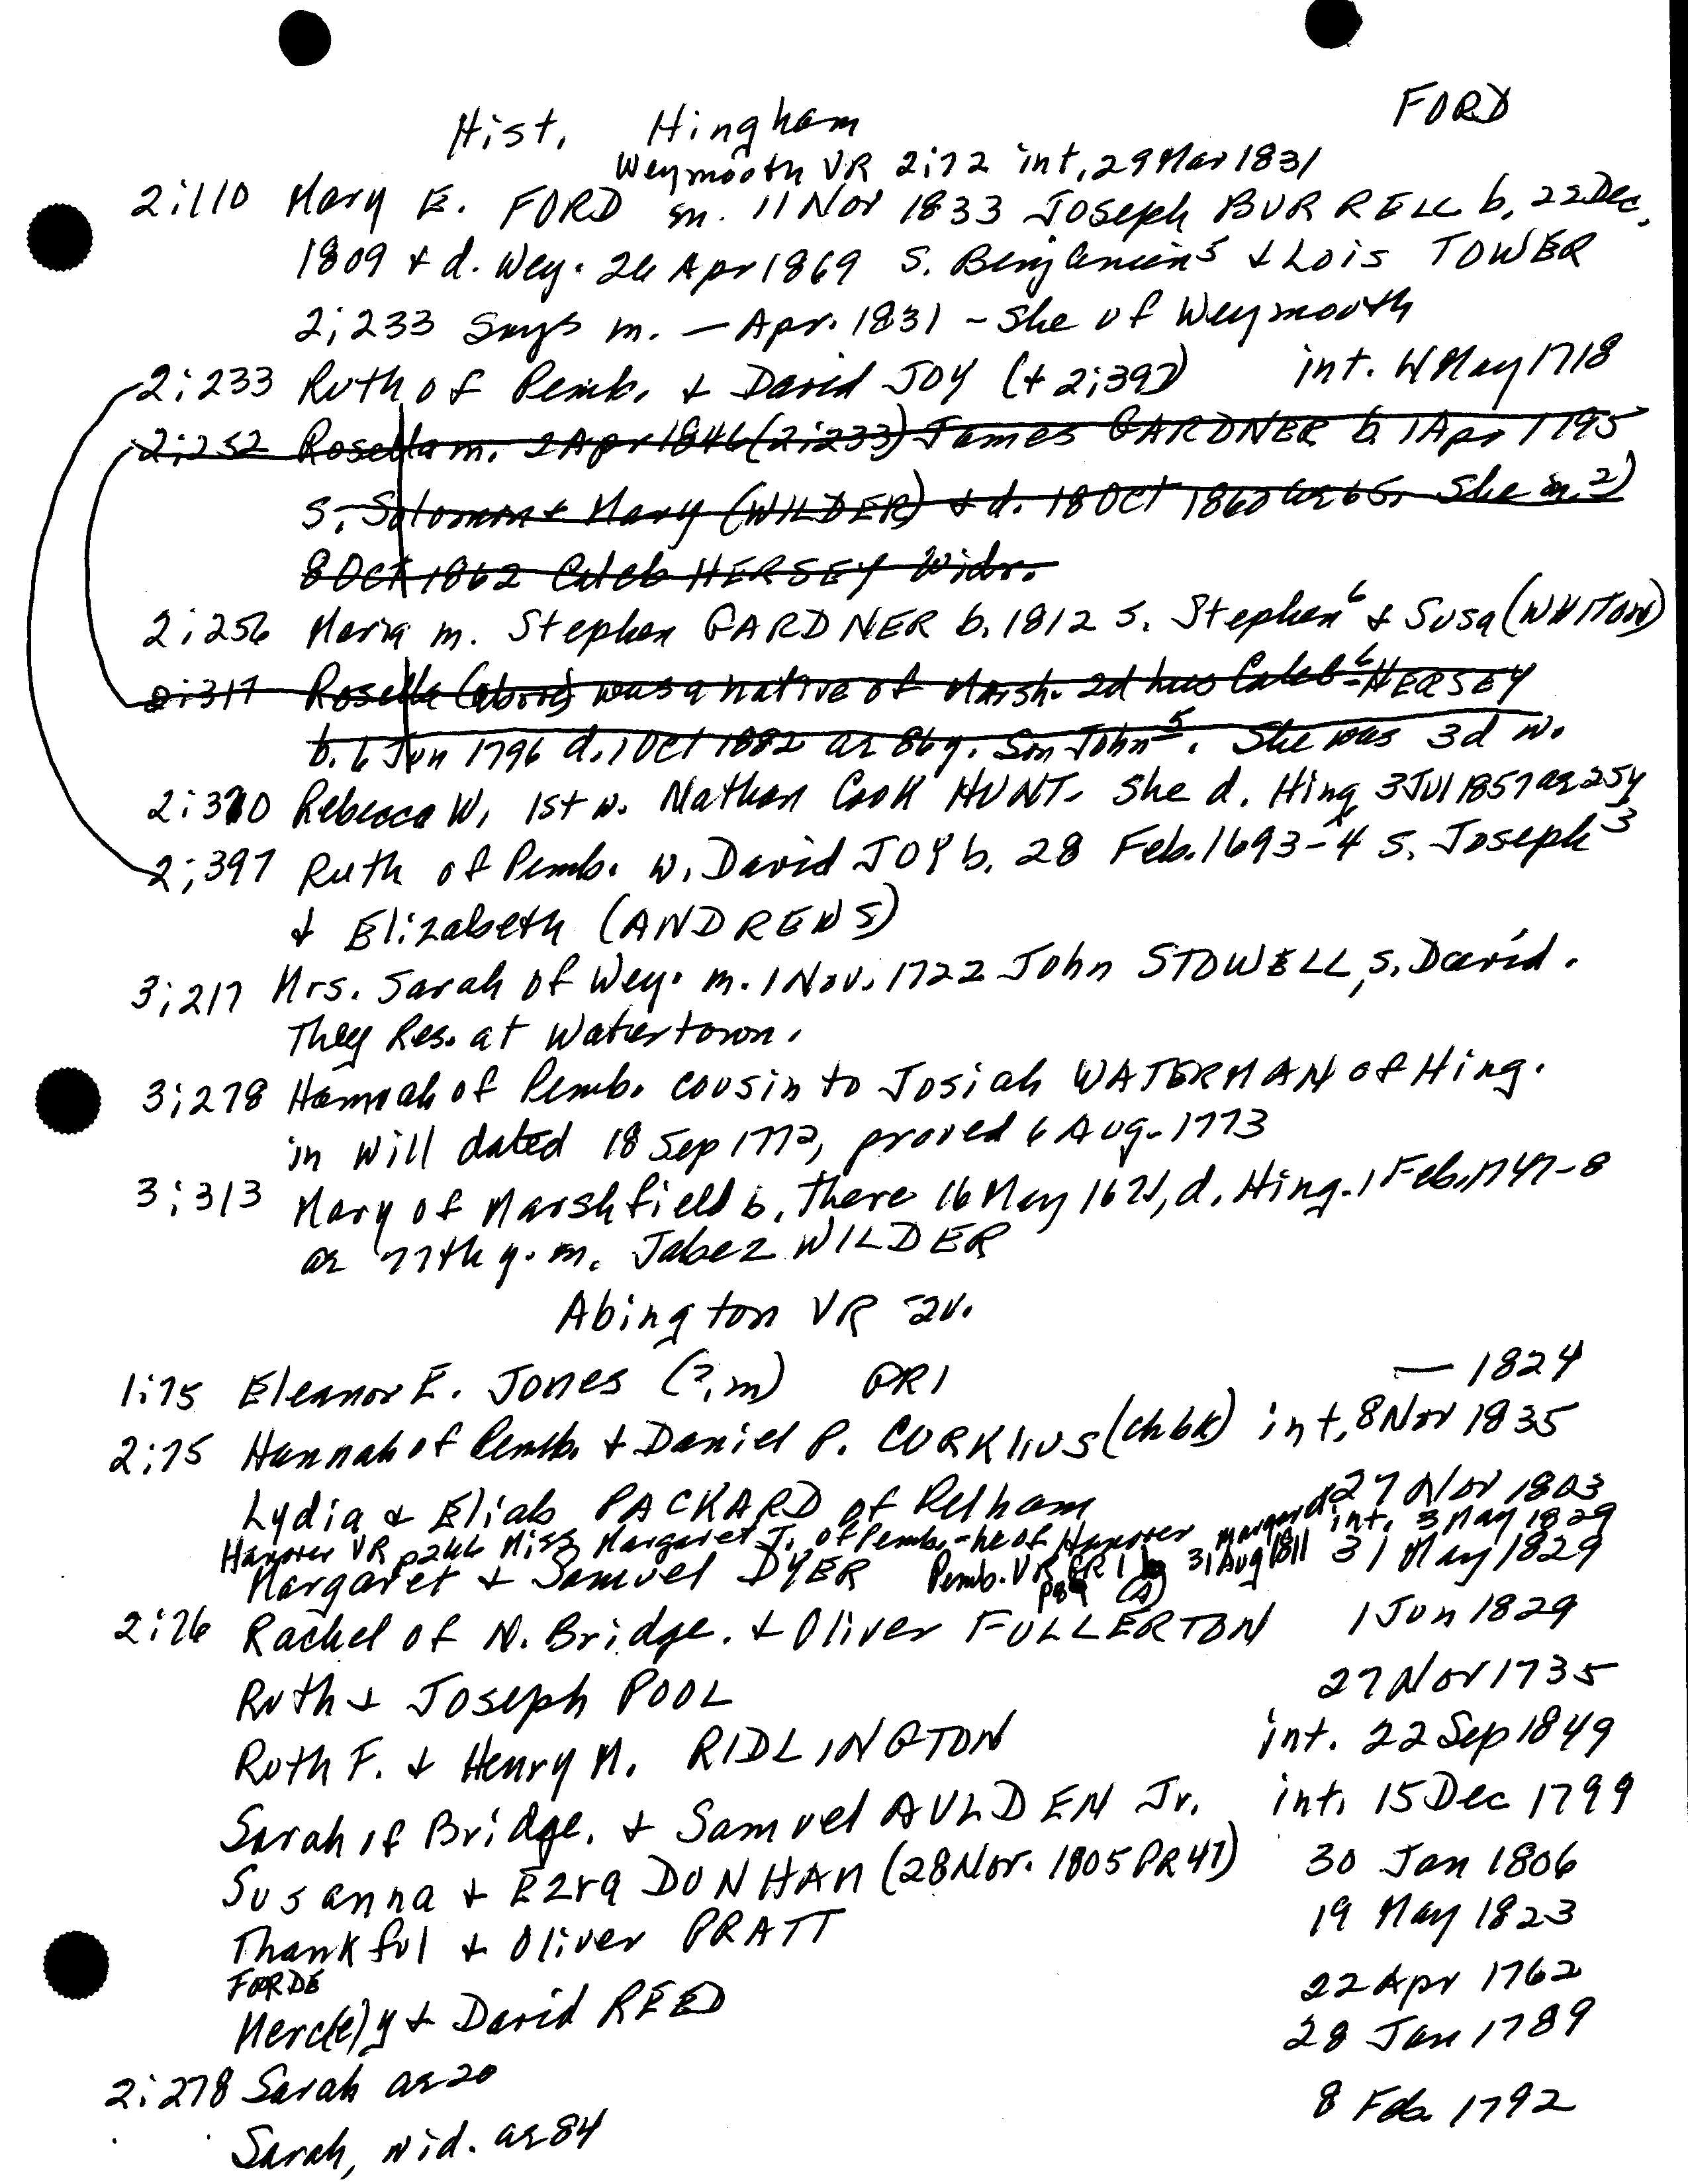 FORD
Hist. Hingham
Weymouth VR 2:72 int. 29 Mar 1831
2:110 Mary E. FORD m. 11 Nov 1833 Joseph BURRELL b. 22 Dec.
1809 & d. Wey. 26 Apr 1869 S. Benjamin⁵ & Lois TOWER
2:233 says m. — Apr. 1831 - She of Weymouth
2:233 Ruth of Pemb. & David JOY (+ 2:397) int. 4 May 1718
2:252 Rosella m. 2 Apr 1846 (2:233) James GARDNER b. 1 Apr 1795
s. Solomon & Mary (WILDER) & d. 18 Oct 1860 ae 65. She m. 2)
8 Oct 1862 Caleb HERSEY Widr.
2:256 Maria m. Stephen GARDNER b. 1812 s. Stephen⁶ & Susa (WHITON)
2:317 Rosella (above) was a native of Marsh. 2d hus Caleb⁶ HERSEY
b. 6 Jun 1796 d. 1 Oct 1882 ae 86 y. Son John⁵. She was 3d w.
2:370 Rebecca W. 1st w. Nathan Cook HUNT. She d. Hing 3 Jul 1857 ae 25y
2:397 Ruth of Pemb. w. David JOY b. 28 Feb. 1693-4 s. Joseph³
& Elizabeth (ANDREWS)
3:217 Mrs. Sarah of Wey. m. 1 Nov. 1722 John STOWELL, s. David.
They Res. at Watertown.
3:278 Hannah of Pemb. cousin to Josiah WATERMAN of Hing.
in Will dated 18 Sep 1772, proved 6 Aug. 1773
3:313 Mary of Marshfield b. there 16 May 1671, d. Hing. 1 Feb. 1747-8
ae 77th y. m. Jabez WILDER
Abington VR 2v.
1:75 Eleanor E. Jones (?, m) GR1 — 1824
2:75 Hannah of Pemb. & Daniel P. CORKlius (ch bk) int. 8 Nov 1835
Lydia & Eliab PACKARD of Pelham 27 Nov 1803
Hanover VR p246 Miss Margaret J. of Pemb. - he of Hanover Margaret int. 3 May 1829
Margaret & Samuel DYER Pemb. VR GR1 b 31 Aug 1811 31 May 1829
p89
2:76 Rachel of N. Bridge. & Oliver FULLERTON 1 Jun 1829
Ruth & Joseph POOL 27 Nov 1735
Ruth F. & Henry M. RIDLINGTON int. 22 Sep 1849
Sarah of Bridge. & Samuel AULDEN Jr. int. 15 Dec 1799
Susanna & Ezra DUNHAM (28 Nov. 1805 PR 47) 30 Jan 1806
Thankful & Oliver PRATT 19 May 1823
FORDE
Merc(e)y & David REED 22 Apr 1762
2:278 Sarah ae 20 28 Jan 1789
Sarah, wid. ae 84 8 Feb. 1792